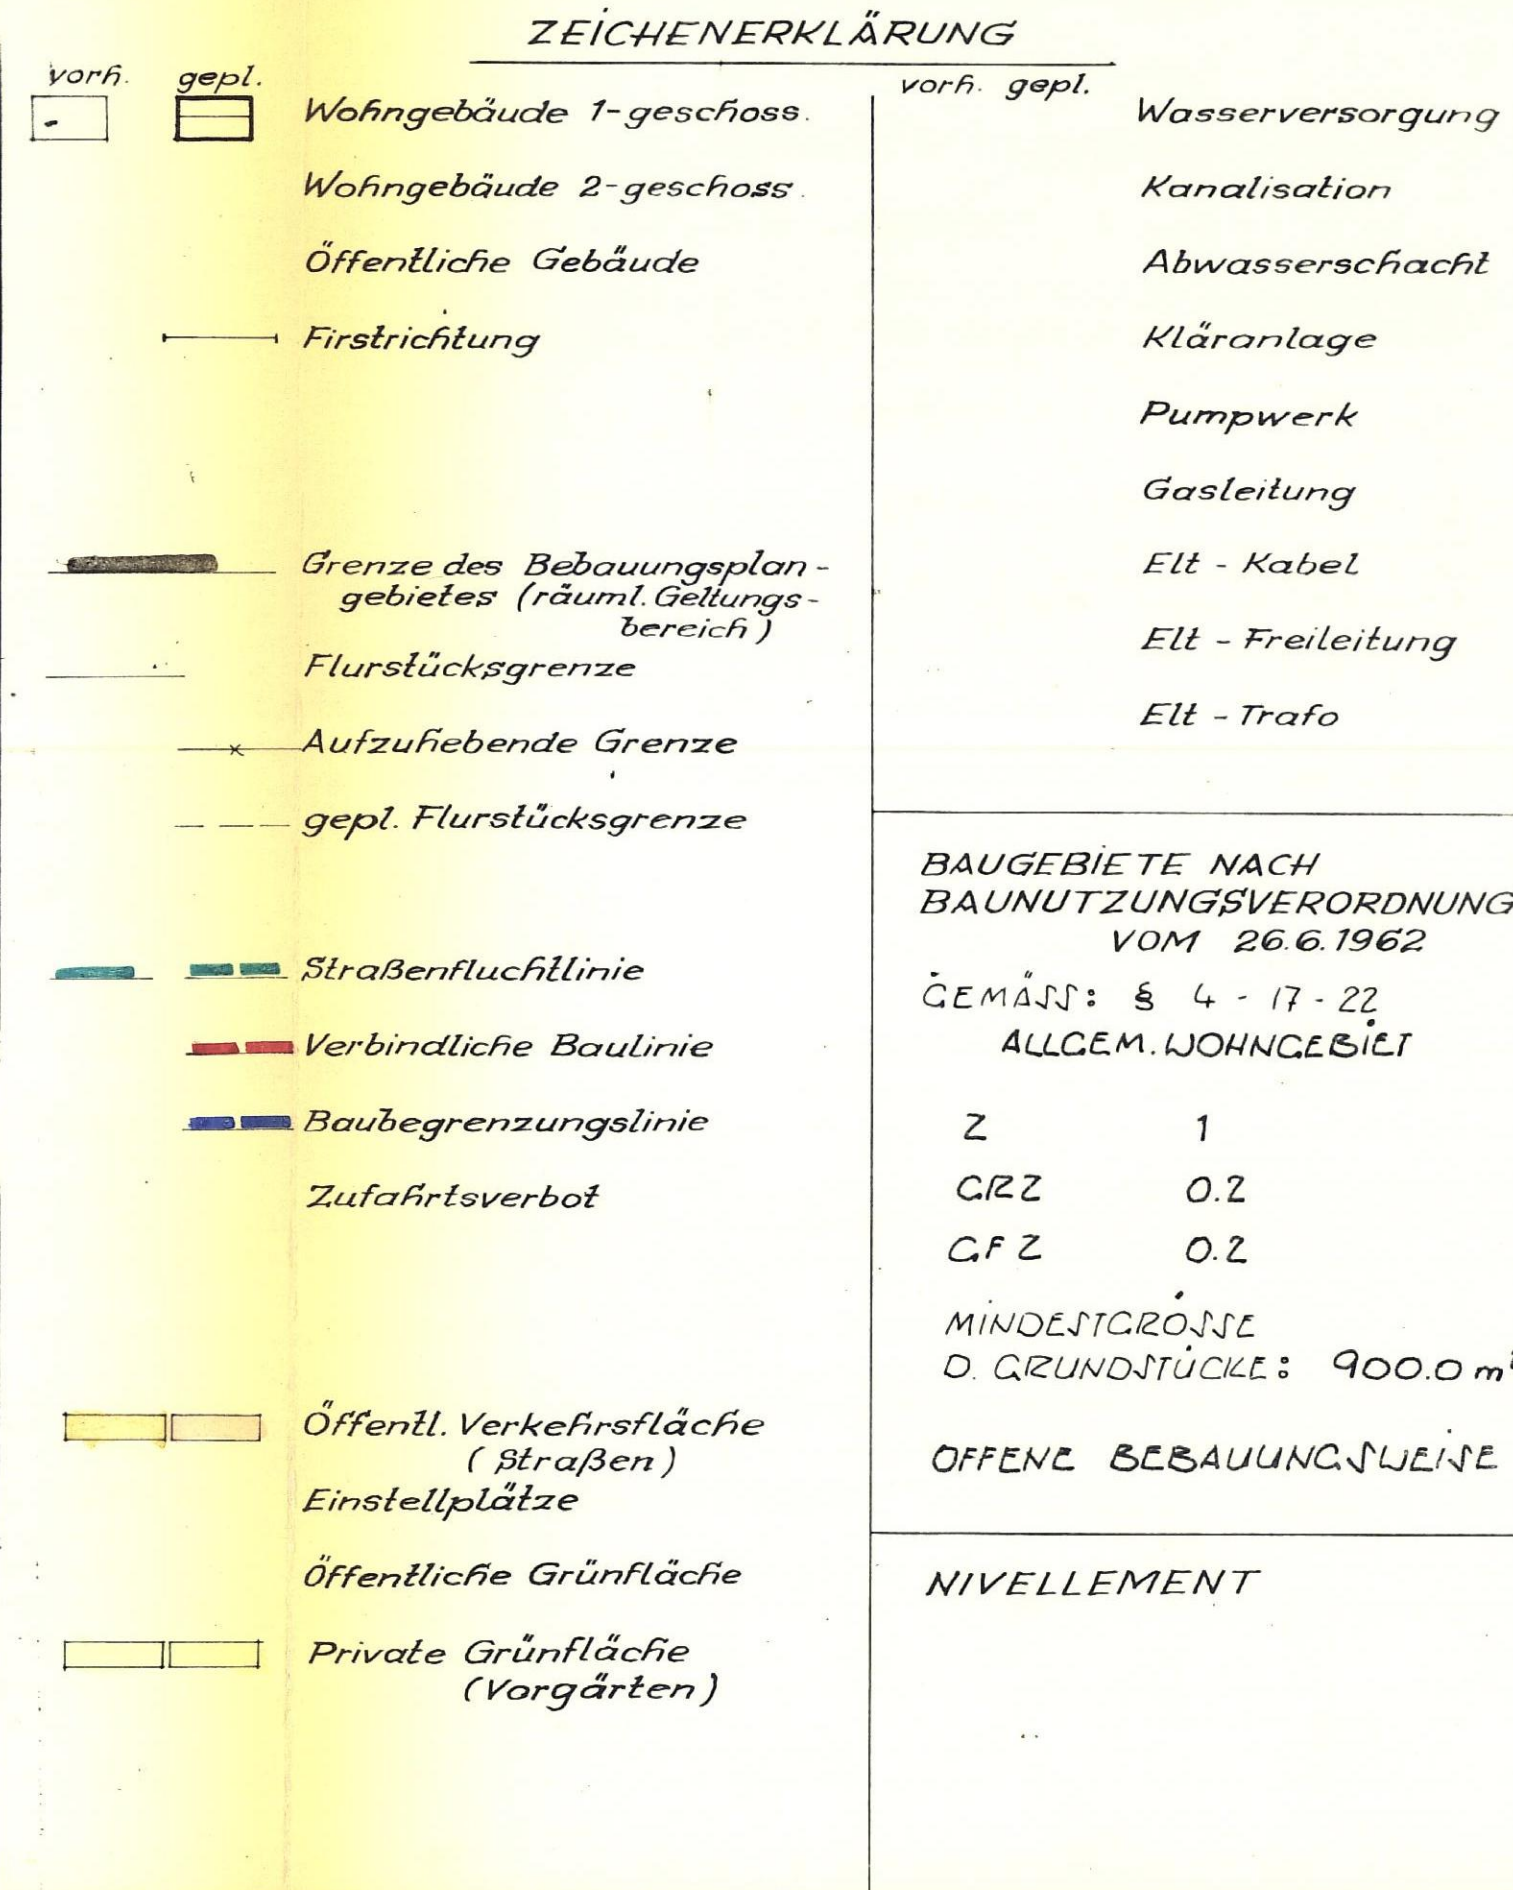 ZEICHENERKLÄRUNG
vorh. gepl.
Wohngebäude 1-geschoss.
Wohngebäude 2-geschoss.
Öffentliche Gebäude
Firstrichtung
Grenze des Bebauungsplan-
gebietes (räuml. Geltungs-
bereich)
Flurstücksgrenze
Aufzuhebende Grenze
gepl. Flurstücksgrenze
Straßenfluchtlinie
Verbindliche Baulinie
Baubegrenzungslinie
Zufahrtsverbot
Öffentl. Verkehrsfläche
(Straßen)
Einstellplätze
Öffentliche Grünfläche
Private Grünfläche
(Vorgärten)
vorh. gepl.
Wasserversorgung
Kanalisation
Abwasserschacht
Kläranlage
Pumpwerk
Gasleitung
Elt - Kabel
Elt - Freileitung
Elt - Trafo
BAUGEBIETE NACH
BAUNUTZUNGSVERORDNUNG
VOM 26.6.1962
GEMÄSS: § 4 - 17 - 22
ALLGEM. WOHNGEBIET
Z 1
GRZ 0.2
GFZ 0.2
MINDESTGRÖSSE
D. GRUNDSTÜCKE: 900.0 m²
OFFENE BEBAUUNGSWEISE
NIVELLEMENT